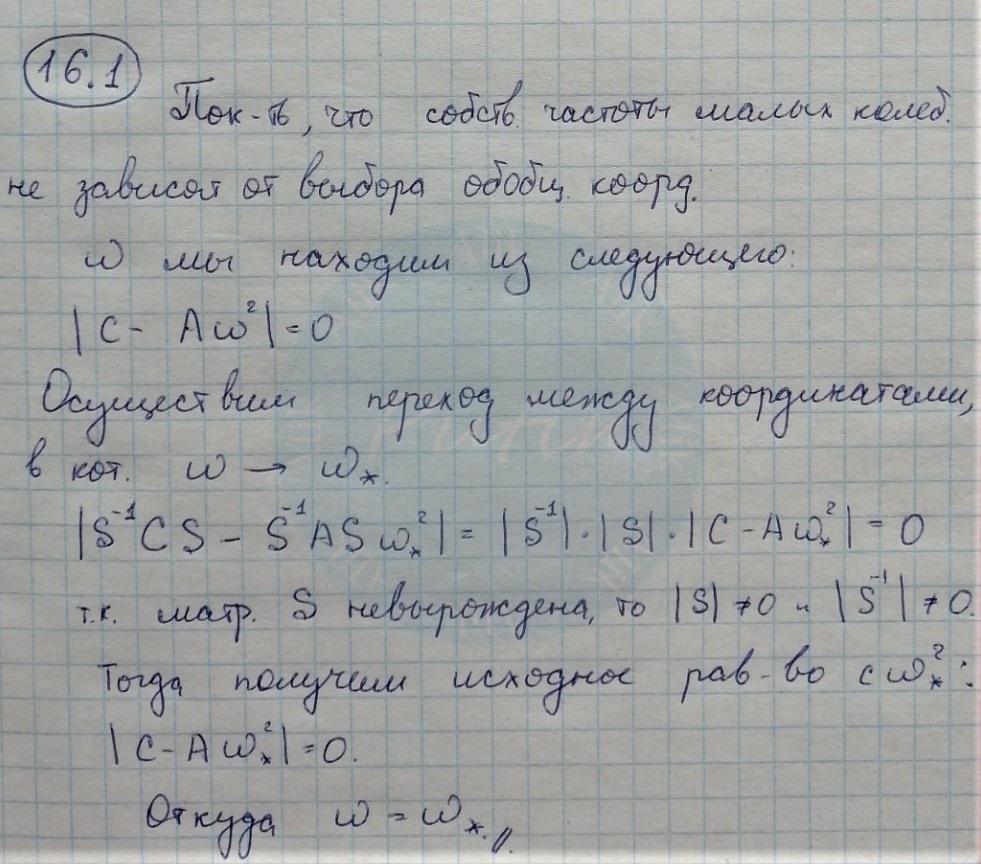 16.1
Пок-ть, что собств. частоты малых колеб.
не зависят от выбора обобщ. коорд.
ω мы находим из следующего:
|C - Aω²| = 0
Осуществим переход между координатами,
в кот. ω → ω⁎.
|S⁻¹CS - S⁻¹ASω⁎²| = |S⁻¹|·|S|·|C - Aω⁎²| = 0
т.к. матр. S невырождена, то |S| ≠ 0 и |S⁻¹| ≠ 0.
Тогда получим исходное рав-во с ω⁎²:
|C - Aω⁎²| = 0.
Откуда ω = ω⁎.//